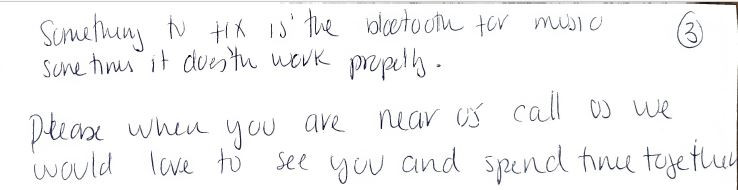 Something to fix is the bloetooth for music
sometimes it does'tn work propetly.
3
Please when you are near us call us we
would love to see you and spend time together